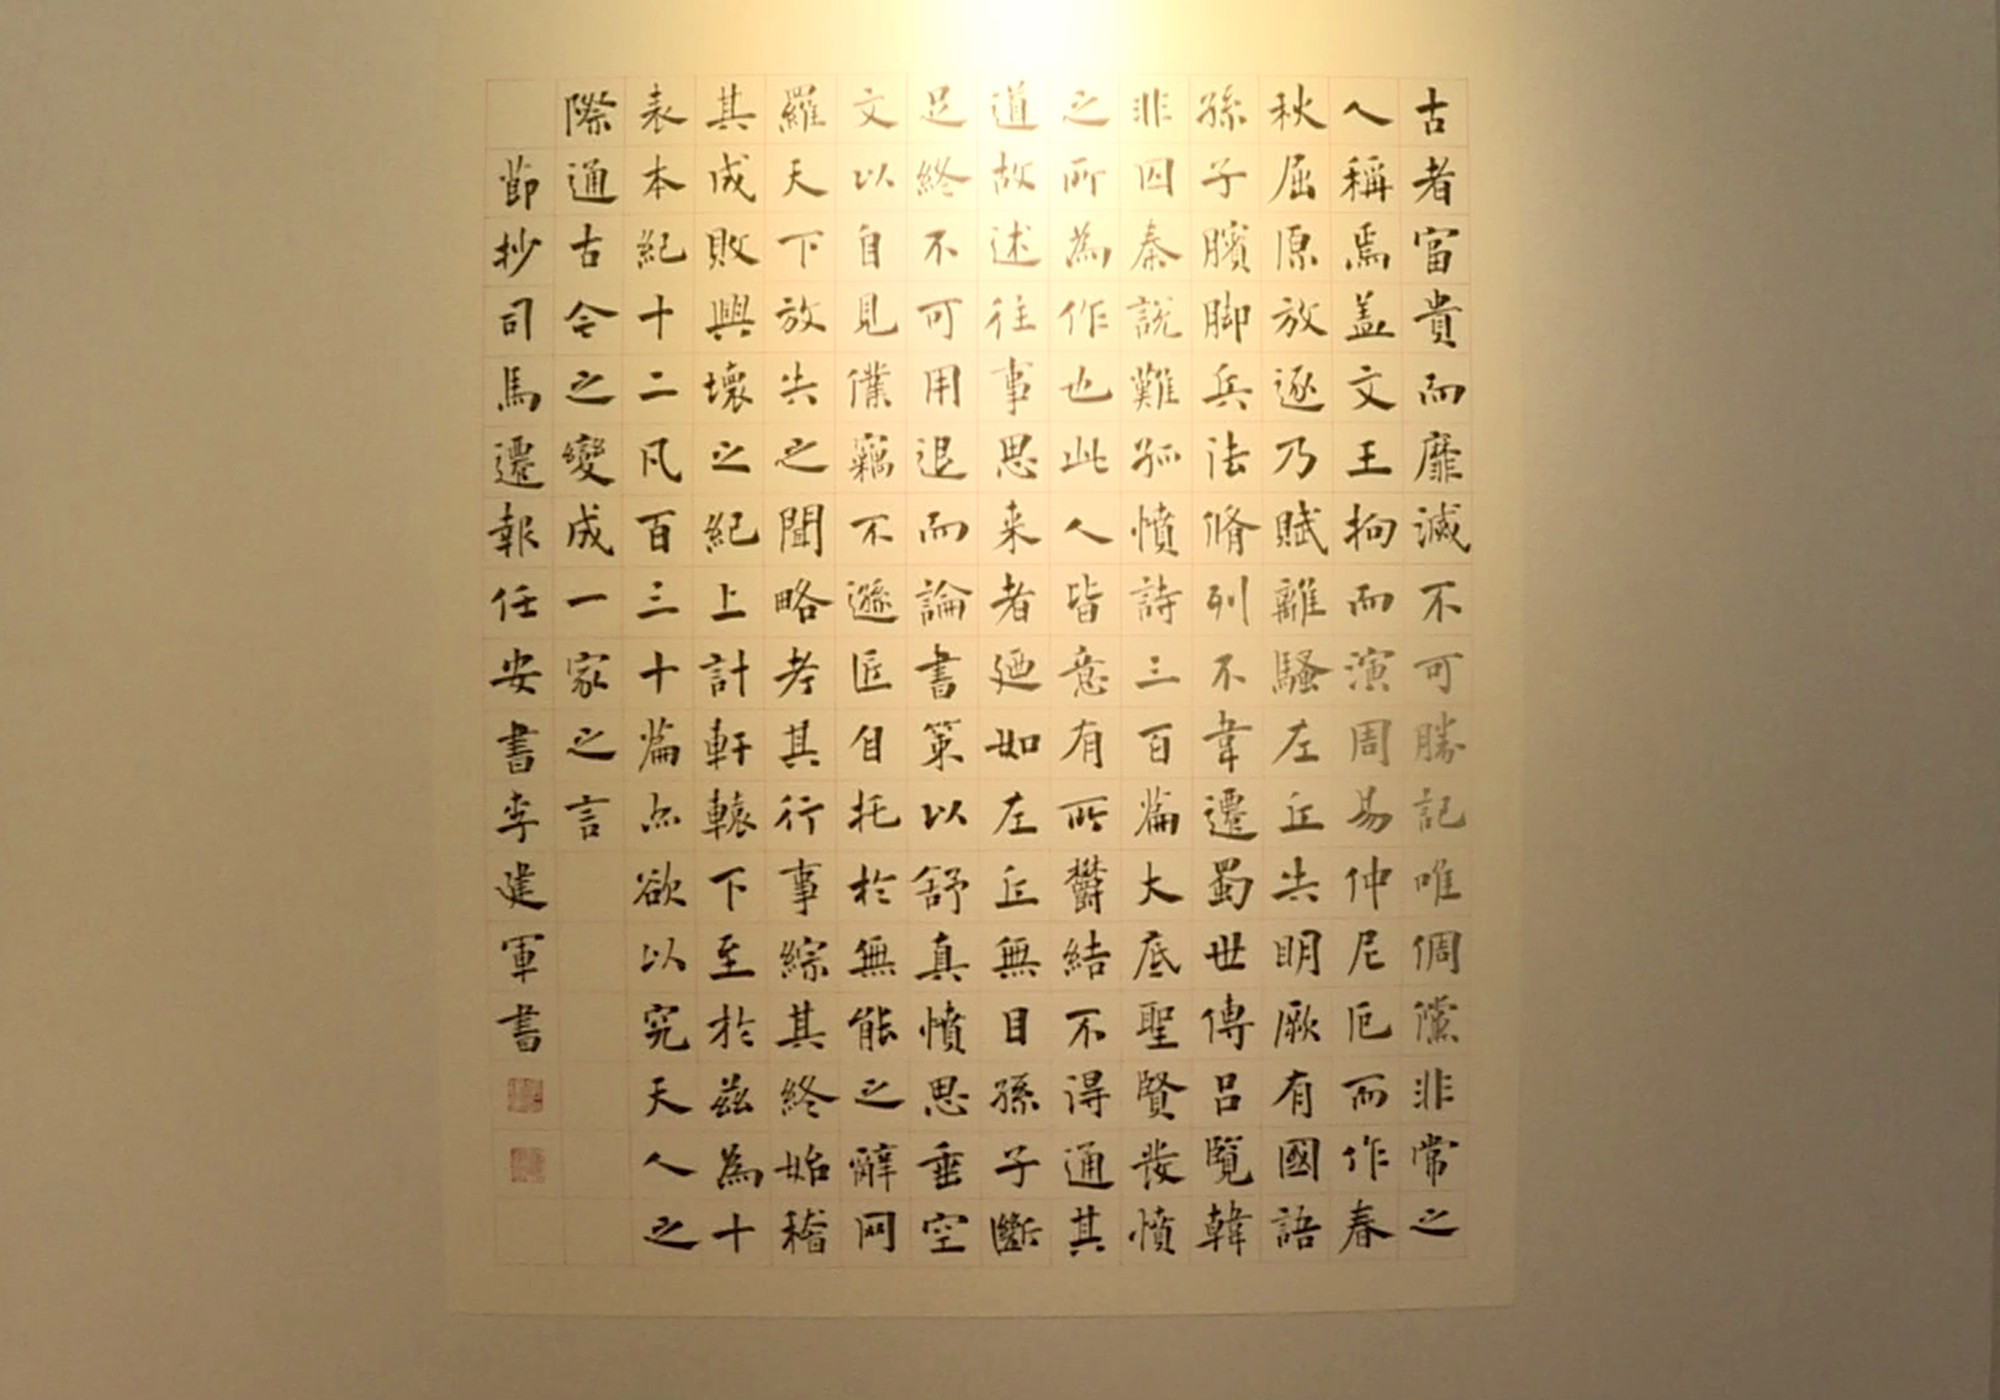 古者富貴而靡滅不可勝記唯倜儻非常之
人稱焉盖文王拘而演周易仲尼厄而作春
秋屈原放逐乃賦離騷左丘失明厥有國語
孫子臏脚兵法脩列不韋遷蜀世傳呂覽韓
非囚秦說難孤憤詩三百篇大底聖賢發憤
之所為作也此人皆意有所鬱結不得通其
道故述往事思来者廼如左丘無目孫子斷
足終不可用退而論書策以舒真憤思垂空
文以自見僕竊不遜近自托於無能之辭网
羅天下放失之聞略考其行事綜其終始稽
其成敗興壞之紀上計軒轅下至於茲為十
表本紀十二凡百三十篇亦欲以究天人之
際通古今之變成一家之言
節抄司馬遷報任安書李建軍書